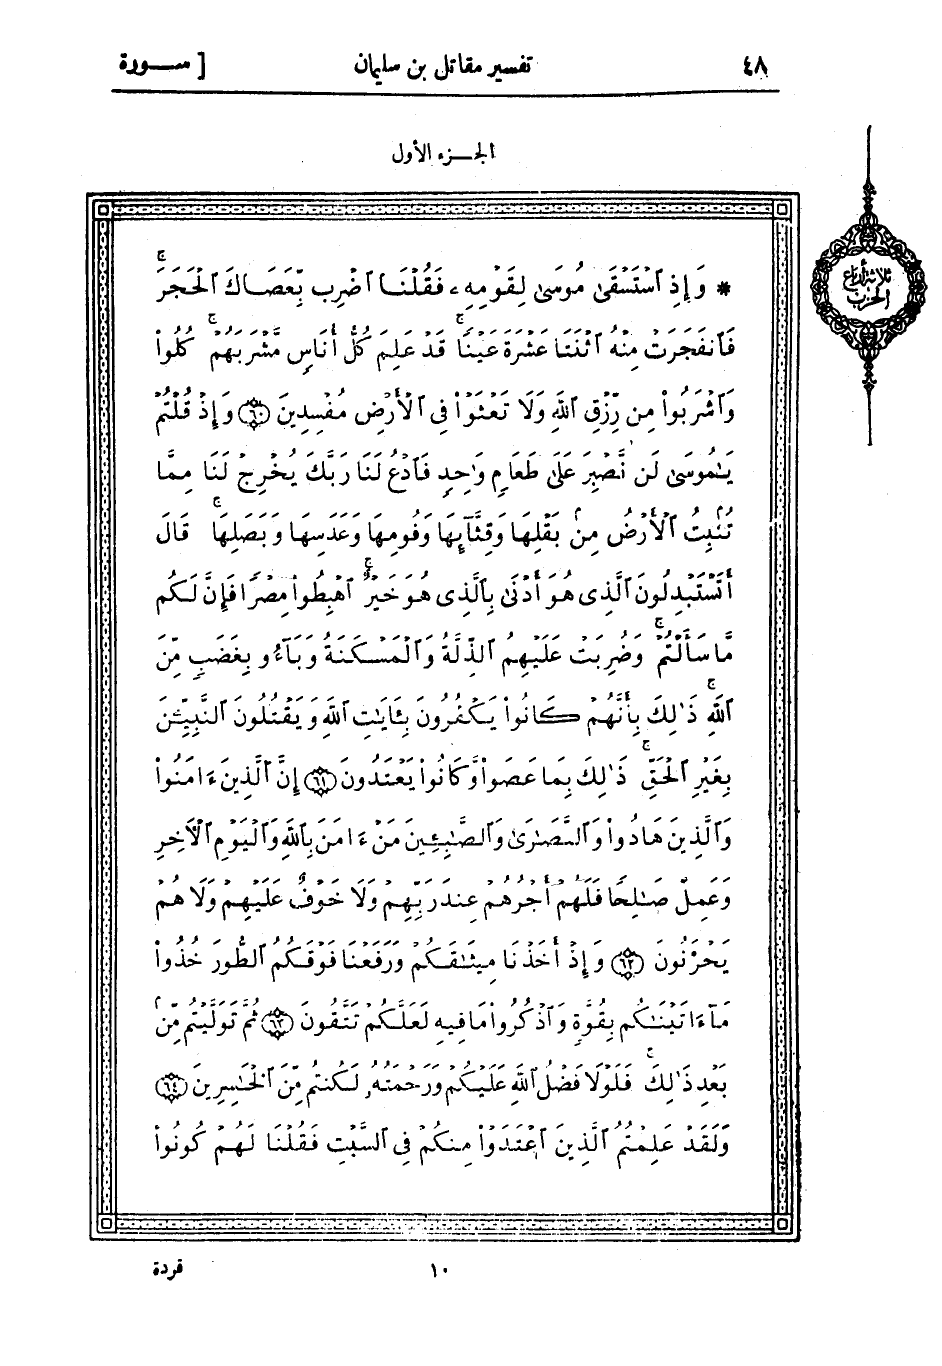 ٤٨
تفسير مقاتل بن سليمان
[ ســـورة
الجـــزء الأول
ثلاثة أرباع
الحزب
* وَإِذِ ٱسْتَسْقَىٰ مُوسَىٰ لِقَوْمِهِۦ فَقُلْنَا ٱضْرِب بِّعَصَاكَ ٱلْحَجَرَ ۖ
فَٱنفَجَرَتْ مِنْهُ ٱثْنَتَا عَشْرَةَ عَيْنًا ۖ قَدْ عَلِمَ كُلُّ أُنَاسٍ مَّشْرَبَهُمْ ۖ كُلُوا۟
وَٱشْرَبُوا۟ مِن رِّزْقِ ٱللَّهِ وَلَا تَعْثَوْا۟ فِى ٱلْأَرْضِ مُفْسِدِينَ ﴿٦٠﴾ وَإِذْ قُلْتُمْ
يَـٰمُوسَىٰ لَن نَّصْبِرَ عَلَىٰ طَعَامٍ وَٰحِدٍ فَٱدْعُ لَنَا رَبَّكَ يُخْرِجْ لَنَا مِمَّا
تُنۢبِتُ ٱلْأَرْضُ مِنۢ بَقْلِهَا وَقِثَّآئِهَا وَفُومِهَا وَعَدَسِهَا وَبَصَلِهَا ۖ قَالَ
أَتَسْتَبْدِلُونَ ٱلَّذِى هُوَ أَدْنَىٰ بِٱلَّذِى هُوَ خَيْرٌ ۚ ٱهْبِطُوا۟ مِصْرًا فَإِنَّ لَكُم
مَّا سَأَلْتُمْ ۗ وَضُرِبَتْ عَلَيْهِمُ ٱلذِّلَّةُ وَٱلْمَسْكَنَةُ وَبَآءُو بِغَضَبٍ مِّنَ
ٱللَّهِ ۗ ذَٰلِكَ بِأَنَّهُمْ كَانُوا۟ يَكْفُرُونَ بِـَٔايَـٰتِ ٱللَّهِ وَيَقْتُلُونَ ٱلنَّبِيِّـۧنَ
بِغَيْرِ ٱلْحَقِّ ۗ ذَٰلِكَ بِمَا عَصَوا۟ وَّكَانُوا۟ يَعْتَدُونَ ﴿٦١﴾ إِنَّ ٱلَّذِينَ ءَامَنُوا۟
وَٱلَّذِينَ هَادُوا۟ وَٱلنَّصَـٰرَىٰ وَٱلصَّـٰبِـِٔينَ مَنْ ءَامَنَ بِٱللَّهِ وَٱلْيَوْمِ ٱلْـَٔاخِرِ
وَعَمِلَ صَـٰلِحًا فَلَهُمْ أَجْرُهُمْ عِندَ رَبِّهِمْ وَلَا خَوْفٌ عَلَيْهِمْ وَلَا هُمْ
يَحْزَنُونَ ﴿٦٢﴾ وَإِذْ أَخَذْنَا مِيثَـٰقَكُمْ وَرَفَعْنَا فَوْقَكُمُ ٱلطُّورَ خُذُوا۟
مَآ ءَاتَيْنَـٰكُم بِقُوَّةٍ وَٱذْكُرُوا۟ مَا فِيهِ لَعَلَّكُمْ تَتَّقُونَ ﴿٦٣﴾ ثُمَّ تَوَلَّيْتُم مِّنۢ
بَعْدِ ذَٰلِكَ ۖ فَلَوْلَا فَضْلُ ٱللَّهِ عَلَيْكُمْ وَرَحْمَتُهُۥ لَكُنتُم مِّنَ ٱلْخَـٰسِرِينَ ﴿٦٤﴾
وَلَقَدْ عَلِمْتُمُ ٱلَّذِينَ ٱعْتَدَوْا۟ مِنكُمْ فِى ٱلسَّبْتِ فَقُلْنَا لَهُمْ كُونُوا۟
١٠
قردة